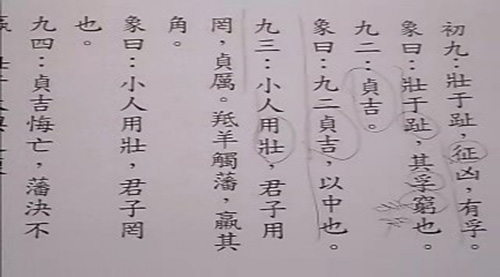 初九：壯于趾，征凶，有孚。
象曰：壯于趾，其孚窮也。
九二：貞吉。
象曰：九二貞吉，以中也。
九三：小人用壯，君子用
罔，貞厲。羝羊觸藩，羸其
角。
象曰：小人用壯，君子罔
也。
九四：貞吉悔亡，藩決不